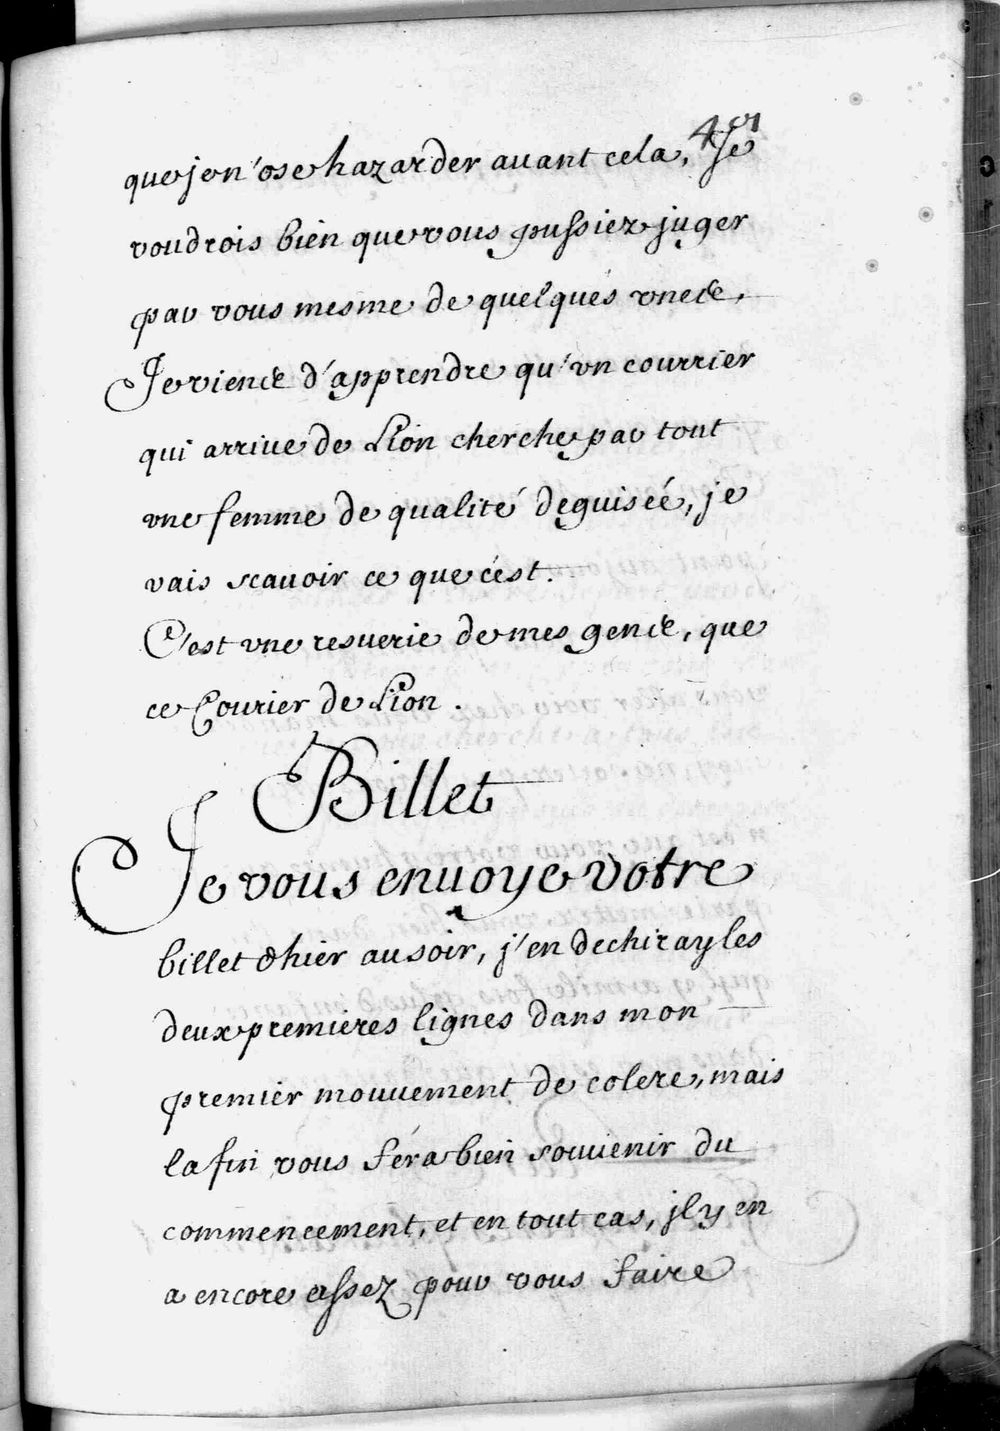 que je n'ose hazarder auant cela, Je
voudrois bien que vous pussiez juger
par vous mesme de quelques vnes,
Je viens d'apprendre qu'vn courrier
qui arriue de Lion cherche par tout
vne femme de qualité deguiseé, je
vais scauoir ce que c'est.
C'est vne resuerie de mes gens, que
ce Courier de Lion.
Billet
Je vous enuoye votre
billet d'hier au soir, j'en dechiray les
deux premieres lignes dans mon
premier mouuement de colere, mais
la fin vous fera bien souuenir du
commencement, et en tout cas, jl y en
a encore assez pour vous faire